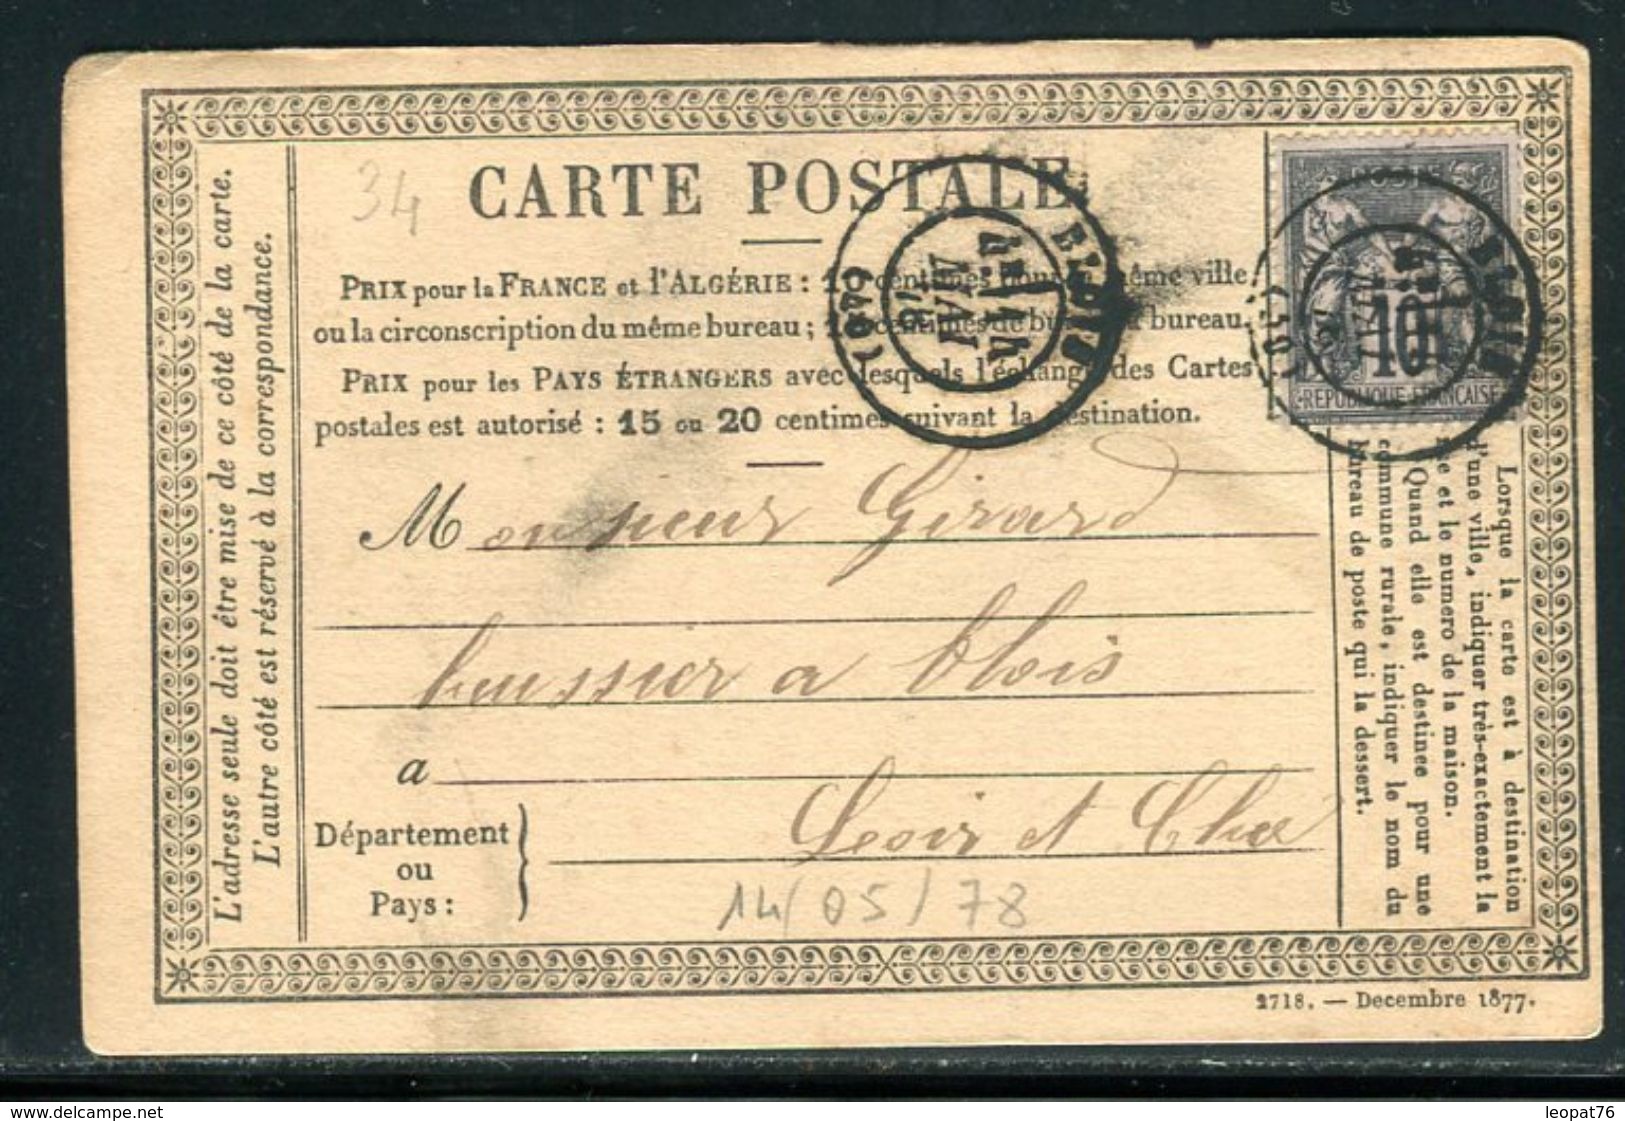 34
CARTE POSTALE
PRIX pour la FRANCE et l'ALGÉRIE : 10 centimes pour la même ville
ou la circonscription du même bureau ; centimes de bureau à bureau.
PRIX pour les PAYS ÉTRANGERS avec lesquels l'échange des Cartes
postales est autorisé : 15 ou 20 centimes suivant la destination.
BLOIS
4E
MAI
78
(40)
BLOIS
10
REPUBLIQUE FRANÇAISE
Monsieur Girard
huissier a blois
a
Département
ou
Pays :
Loir et Cher
14/05/78
L'adresse seule doit être mise de ce côté de la carte.
L'autre côté est réservé à la correspondance.
Lorsque la carte est à destination
d'une ville, indiquer très-exactement la
rue et le numero de la maison.
Quand elle est destinee pour une
commune rurale, indiquer le nom du
bureau de poste qui la dessert.
2718. — Decembre 1877.
www.delcampe.net
leopat76